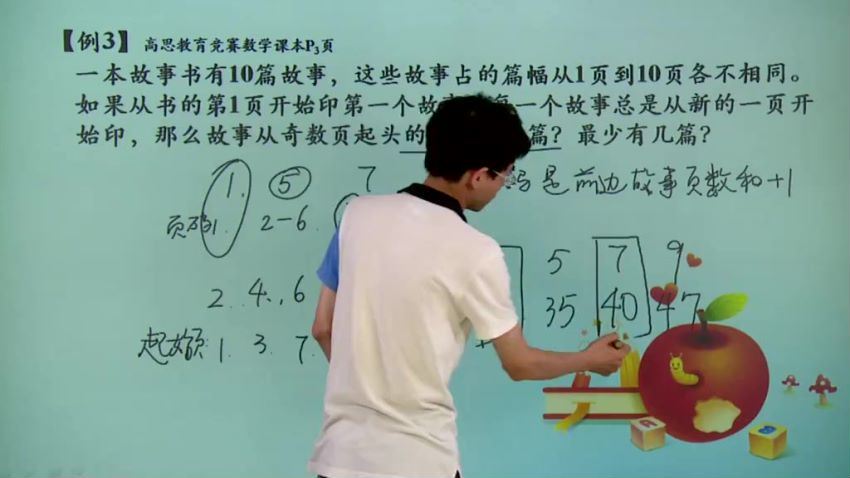 【例3】 高思教育竞赛数学课本P3页
一本故事书有10篇故事，这些故事占的篇幅从1页到10页各不相同。
如果从书的第1页开始印第一个故 一个故事总是从新的一页开
始印，那么故事从奇数页起头的 篇？最少有几篇？
1. 5 7
是前边故事页数和+1
页码1. 2-6.
5 7 9
2. 4. 6
35 40 47
起始页: 1. 3. 7.